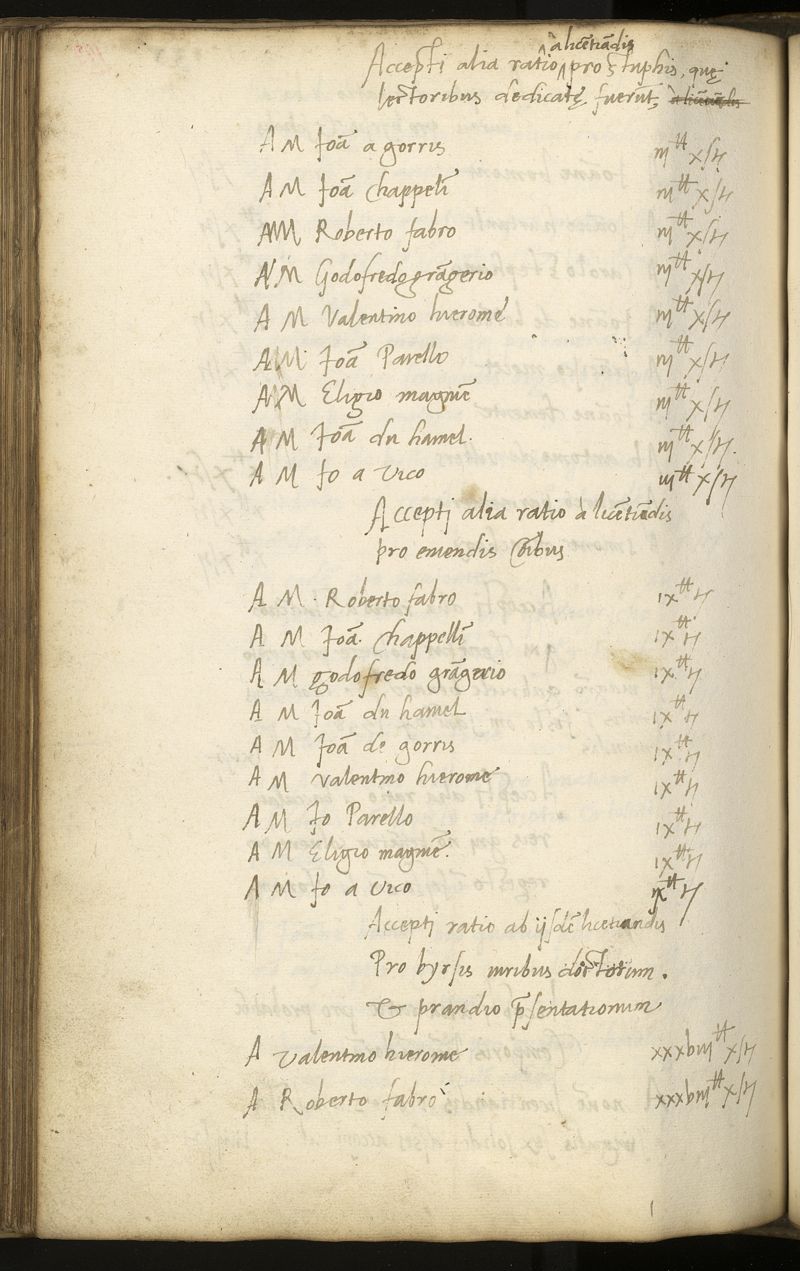 Accepti alia ratio à licētiādis pro stuphis, quę
lectoribus dedicatę fuerūt, à licētiādis
A M Joā a gorris iij tt x ſ tz
A M Joā Chappelī iij tt x ſ tz
A M Roberto fabro iij tt x ſ tz
A M Godofredo grāgerio iij tt x ſ tz
A M Valentino hierome iij tt x ſ tz
A M Joā Parello iij tt x ſ tz
A M Eligio magniē iij tt x ſ tz
A M Joā du hamel. iij tt x ſ tz.
A M Jo a Vico iij tt x ſ tz
Accepti alia ratio à licētiādis
pro emendis
A M Roberto fabro ix tt tz
A M Joā. Chappellī ix tt tz
A M godofredo grāgerio ix tt tz
A M Joā du hamel ix tt tz
A M Joā de gorris ix tt tz
A M valentino hierome ix tt tz
A M Jo Parello ix tt tz
A M Eligio magniē. ix tt tz
A M Jo a Vico ix tt tz
Accepti ratio ab ijſdē licētiandis
Pro byrsis iuribus doctorum.
& prandio p̄ſentationum
A Valentino hierome xxxbiij tt x ſ tz
A Roberto fabro xxxbiij tt x ſ tz